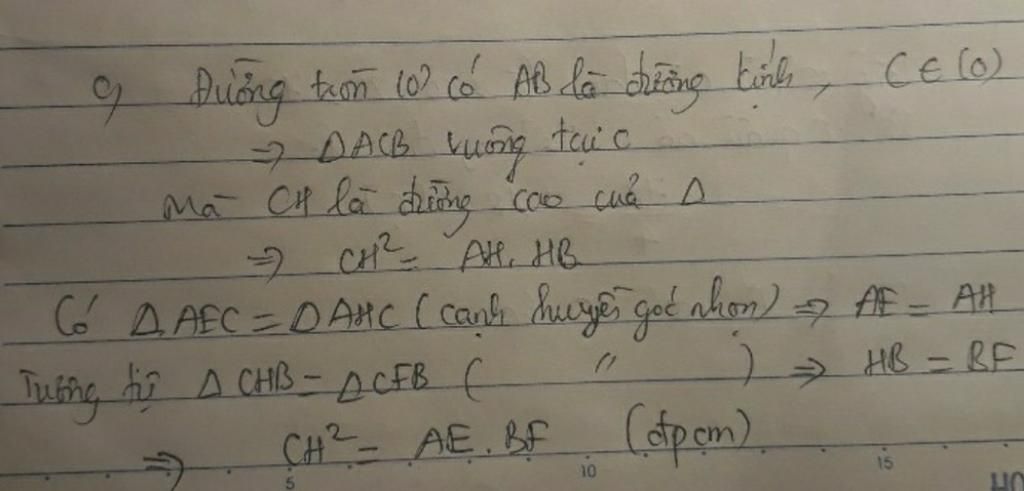 c) Đường tròn (O) có AB là đường kính, C ∈ (O)
⇒ ΔACB vuông tại C
Mà CH là đường cao của Δ
⇒ CH² = AH. HB
Có ΔAEC = ΔAHC (cạnh huyền góc nhọn) ⇒ AE = AH
Tương tự ΔCHB = ΔCFB ( " ) ⇒ HB = BF
⇒ CH² = AE . BF (đpcm)
5 10 15